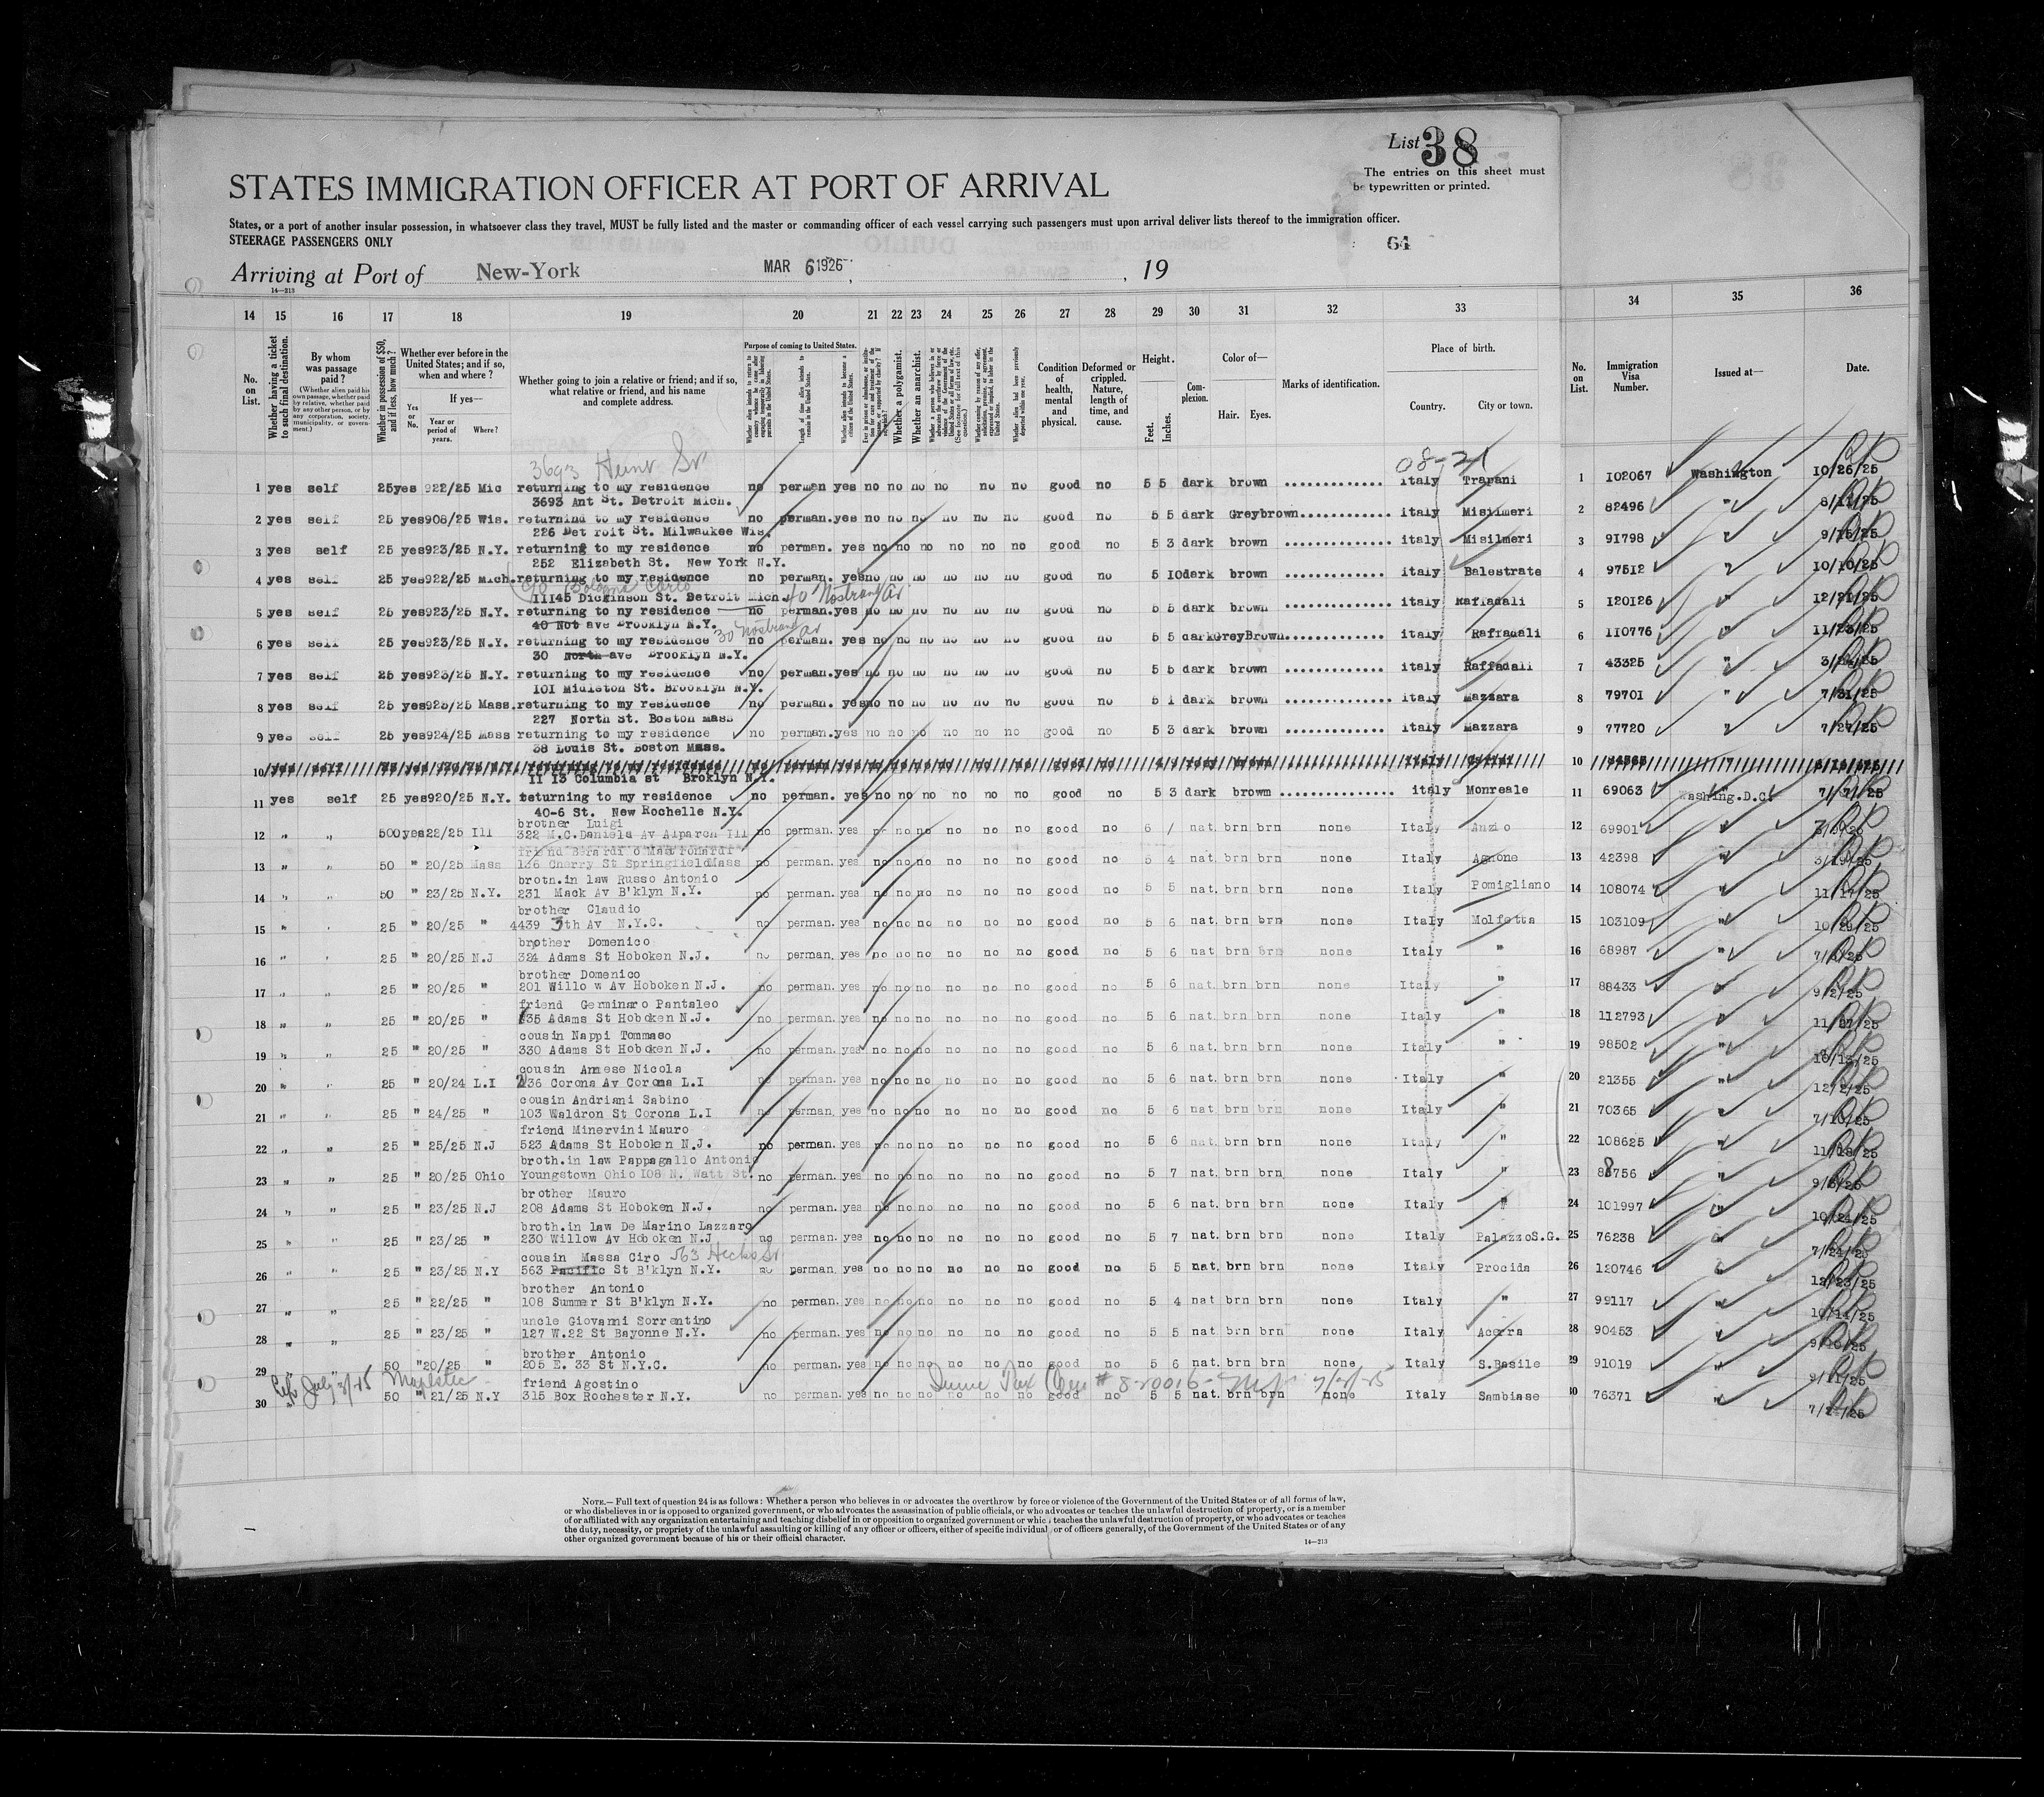 List 38
The entries on this sheet must
be typewritten or printed.
STATES IMMIGRATION OFFICER AT PORT OF ARRIVAL
States, or a port of another insular possession, in whatsoever class they travel, MUST be fully listed and the master or commanding officer of each vessel carrying such passengers must upon arrival deliver lists thereof to the immigration officer.
STEERAGE PASSENGERS ONLY
64
Arriving at Port of New-York MAR 6 1926 , 19
14—213
14 15 16 17 18 19 20 21 22 23 24 25 26 27 28 29 30 31 32 33 34 35 36
No. on List.
Whether having a ticket to such final destination.
By whom was passage paid?
(Whether alien paid his own passage, whether paid by relative, whether paid by any other person, or by any corporation, society, municipality, or government.)
Whether in possession of $50, and if less, how much?
Whether ever before in the United States; and if so, when and where?
If yes—
Yes or No.
Year or period of years.
Where?
Whether going to join a relative or friend; and if so, what relative or friend, and his name and complete address.
Purpose of coming to United States.
Length of time alien intends to remain in the United States.
Whether alien intends to become a citizen of the United States.
Whether a polygamist.
Whether an anarchist.
Condition of health, mental and physical.
Deformed or crippled. Nature, length of time, and cause.
Height.
Feet. Inches.
Complexion.
Color of—
Hair. Eyes.
Marks of identification.
Place of birth.
Country. City or town.
No. on List.
Immigration Visa Number.
Issued at—
Date.
3693 Hunt St 08-21
1 yes self 25 yes 922/25 Mic returning to my residence no perman yes no no no no no no good no 5 5 dark brown ............. italy Trapani 1 102067 Washington 10/26/25
3693 Ant St. Detroit Mich.
2 yes self 25 yes 908/25 Wis. returnind to my residence no perman. yes no no no no no no good no 5 5 dark Greybrown ............. italy Misilmeri 2 82496 " 8/11/25
226 Det roit St. Milwaukee Wis.
3 yes self 25 yes 923/25 N.Y. returning to my residence no perman. yes no no no no no no good no 5 3 dark brown ............. italy Misilmeri 3 91798 " 9/15/25
252 Elizabeth St. New York N.Y.
4 yes self 25 yes 922/25 Mich. returning to my residence no perman. yes no no no no no no good no 5 10 dark brown ............. italy Balestrate 4 97512 " 10/10/25
c/o Bologna Carlo
11145 Dickinson St. Detroit Mich. 40 Nostrand av
5 yes self 25 yes 923/25 N.Y. returning to my residence no perman. yes no no no no no no good no 5 5 dark brown ............. italy Raffadali 5 120126 " 12/21/25
40 Not ave Brooklyn N.Y.
30 Nostrand av
6 yes self 25 yes 923/25 N.Y. returning to my residence no perman. yes no no no no no no good no 5 5 dark Grey Brown ............. italy Raffadali 6 110776 " 11/23/25
30 North ave Brooklyn N.Y.
7 yes self 25 yes 923/25 N.Y. returning to my residence no perman. yes no no no no no no good no 5 5 dark brown ............. italy Raffadali 7 43325 " 3/24/25
101 Midleton St. Brooklyn N.Y.
8 yes self 25 yes 923/25 Mass. returning to my residence no perman. yes no no no no no no good no 5 1 dark brown ............. italy Mazzara 8 79701 " 7/31/25
227 North St. Boston Mass
9 yes self 25 yes 924/25 Mass returning to my residence no perman. yes no no no no no no good no 5 3 dark brown ............. italy Mazzara 9 77720 " 7/27/25
38 Louis St. Boston Mass.
10 returning to my residence 10
11 13 Columbia st Broklyn N.Y.
11 yes self 25 yes 920/25 N.Y. returning to my residence no perman. yes no no no no no no good no 5 3 dark brown ............. italy Monreale 11 69063 Washing.D.C. 7/7/25
40-6 St. New Rochelle N.Y.
brother Luigi
12 " " 500 yes 22/25 Ill 322 M.C.Daniela Av Alparch Ill no perman. yes no no no no no no good no 6 / nat. brn brn none Italy Anzio 12 69901 "
13 50 " 20/25 Mass 136 Cherry St Springfield Mass no perman. yes no no no no no no good no 5 4 nat. brn brn none Italy Agnone 13 42398 " 3/19/25
broth.in law Russo Antonio
14 " " 50 " 23/25 N.Y. 231 Mack Av B'klyn N.Y. no perman. yes no no no no no no good no 5 5 nat. brn brn none Italy Pomigliano 14 108074 " 11/17/25
brother Claudio
15 " " 25 " 20/25 " 4439 3th Av N.Y.C. no perman. yes no no no no no no good no 5 6 nat. brn brn none Italy Molfetta 15 103109 " 10/29/25
brother Domenico
16 " " 25 " 20/25 N.J 324 Adams St Hoboken N.J. no perman. yes no no no no no no good no 5 6 nat brn brn none Italy " 16 68987 " 7/8/25
brother Domenico
17 " " 25 " 20/25 " 201 Willo w Av Hoboken N.J. no perman. yes no no no no no no good no 5 6 nat. brn brn none Italy " 17 88433 9/2/25
friend Germinaro Pantaleo
18 " " 25 " 20/25 " 135 Adams St Hoboken N.J. no perman. yes no no no no no no good no 5 6 nat. brn brn none Italy " 18 112793 " 11/27/25
cousin Nappi Tommaso
19 " " 25 " 20/25 " 330 Adams St Hoboken N.J. no perman. yes no no no no no no good no 5 6 nat. brn brn none Italy " 19 98502 " 10/13/25
cousin Annese Nicola
20 " " 25 " 20/24 L.I 236 Corona Av Corona L.I no perman. yes no no no no no no good no 5 6 nat. brn brn none Italy " 20 21355 " 12/2/25
cousin Andriani Sabino
21 " " 25 " 24/25 " 103 Waldron St Corona L.I no perman. yes no no no no no no good no 5 6 nat brn brn none Italy " 21 70365 " 7/10/25
friend Minervini Mauro
22 " " 25 " 25/25 N.J 523 Adams St Hoboken N.J. no perman. yes no no no no no no good no 5 6 nat. brn brn none Italy " 22 108625 " 11/18/25
broth.in law Pappagallo Antonio
23 " " 25 " 20/25 Ohio Youngstown Ohio 108 N. Watt St. no perman. yes no no no no no no good no 5 7 nat. brn brn none Italy " 23 88756 "
brother Mauro
24 " " 25 " 23/25 N.J 208 Adams St Hoboken N.J. no perman. yes no no no no no no good no 5 6 nat. brn brn none Italy " 24 101997 " 10/24/25
broth.in law De Marino Lazzaro
25 " " 25 " 23/25 " 230 Willow Av Hoboken N.J no perman. yes no no no no no no good no 5 7 nat. brn brn none Italy Palazzo S.G. 25 76238 " 7/24/25
cousin Massa Ciro 563 Hicks St
26 " " 25 " 23/25 N.Y 563 Pacific St B'klyn N.Y. no perman. yes no no no no no no good no 5 5 nat. brn brn none Italy Procida 26 120746 12/23/25
brother Antonio
27 " " 25 " 22/25 " 108 Summer St B'klyn N.Y. no perman. yes no no no no no no good no 5 4 nat brn brn none Italy " 27 99117 " 10/14/25
uncle Giovanni Sorrentino
28 " " 25 " 23/25 " 127 W.22 St Bayonne N.Y. no perman. yes no no no no no no good no 5 5 nat. brn brn none Italy Acerra 28 90453 " 9/10/25
brother Antonio
29 50 " 20/25 " 205 E. 33 St N.Y.C. no perman. yes no no no no no no good no 5 6 nat. brn brn none Italy S.Basile 29 91019 " 9/11/25
Majestic
friend Agostino
30 " 50 " 21/25 N.Y 315 Box Rochester N.Y. no perman. yes no no no no no no good no 5 5 nat. brn brn none Italy Sambiase 30 76371 " 7/24/25
NOTE.—Full text of question 24 is as follows: Whether a person who believes in or advocates the overthrow by force or violence of the Government of the United States or of all forms of law,
or who disbelieves in or is opposed to organized government, or who advocates the assassination of public officials, or who advocates or teaches the unlawful destruction of property, or is a member
of or affiliated with any organization entertaining and teaching disbelief in or opposition to organized government or which teaches the unlawful destruction of property, or who advocates or teaches
the duty, necessity, or propriety of the unlawful assaulting or killing of any officer or officers, either of specific individuals or of officers generally, of the Government of the United States or of any
other organized government because of his or their official character.
14—213